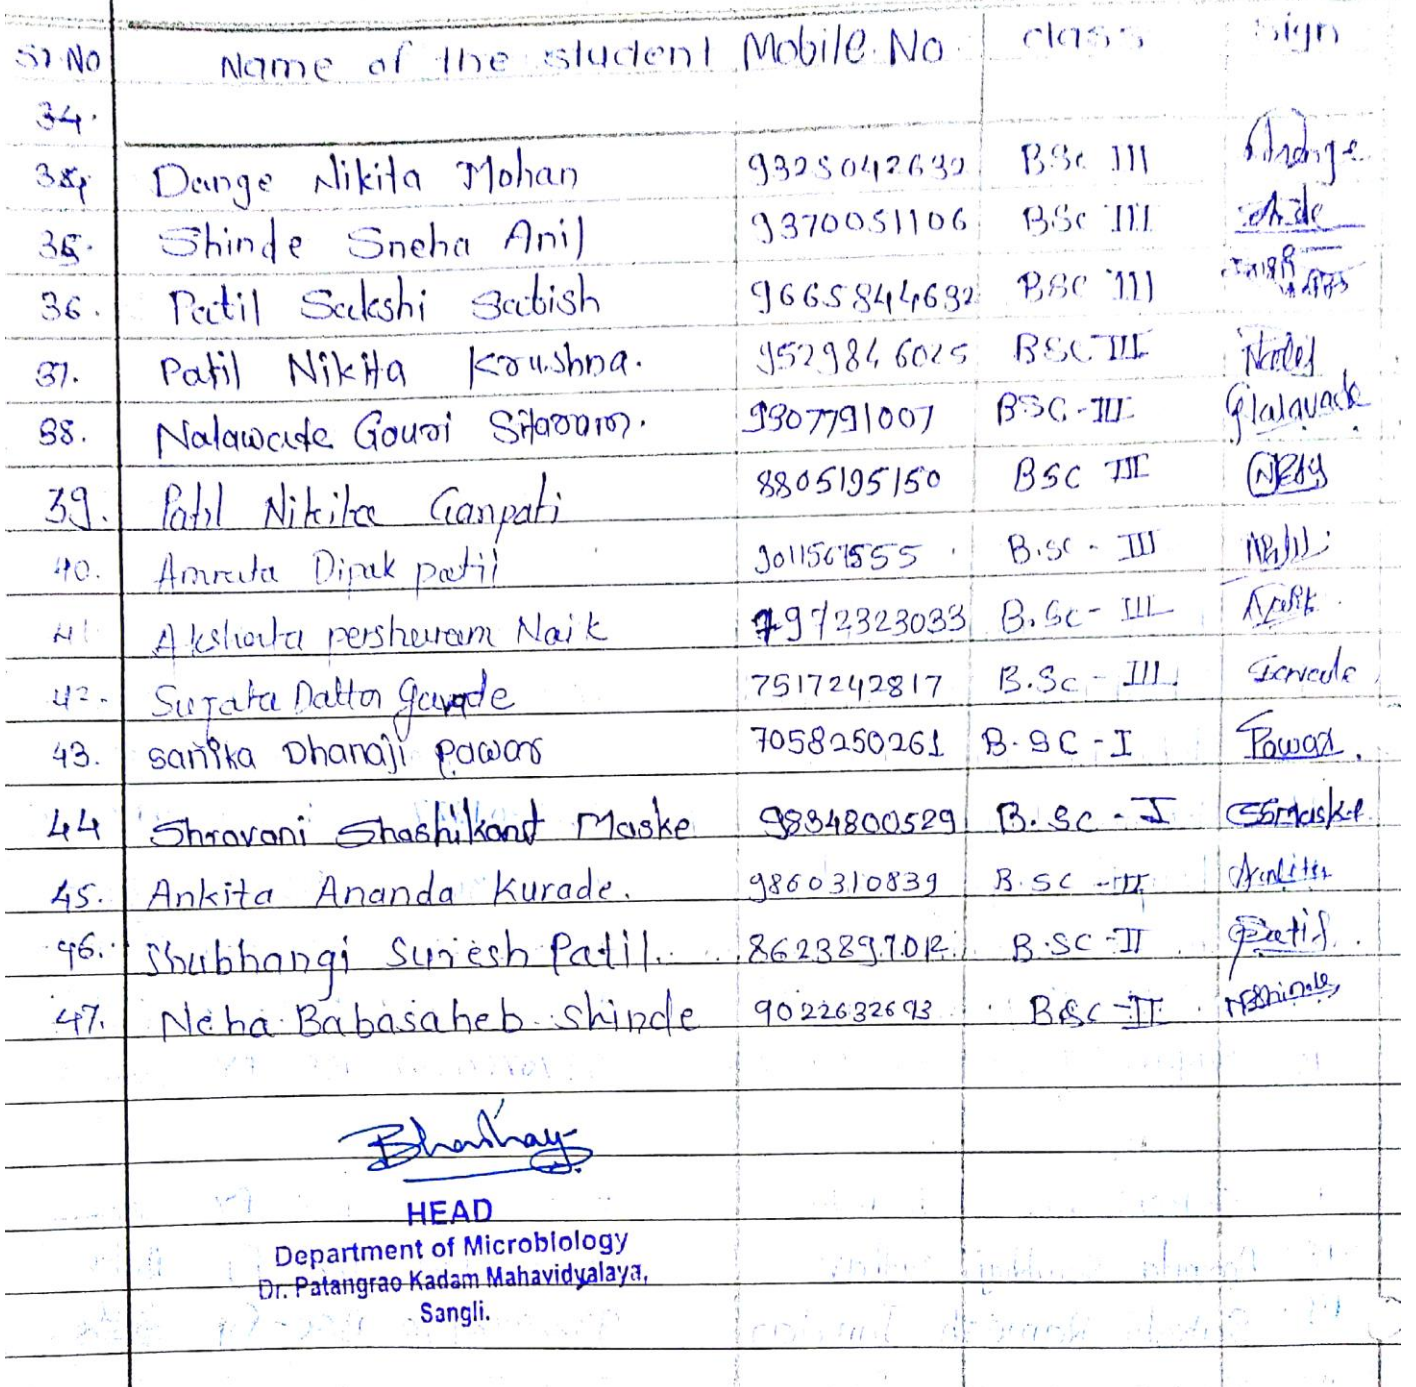 Sr. No Name of the student Mobile No. class sign
34.
34. Dange Nikita Mohan 9325042632 BSc III
35. Shinde Sneha Anil 9370051106 BSc III
36. Patil Sakshi Satish 9665844632 BSC III
37. Patil Nikita Krushna. 9529846025 BSC III
38. Nalawade Gouri Sitaram. 9307791007 BSC-III
39. Patil Nikita Ganpati 8805195150 BSC III
40. Amruta Dipak patil B.sc - III
41. Akshata pershuram Naik 7972323033 B.Sc - III
42. Sujata Datta Gavade 7517242817 B.Sc - III
43. sanika Dhanaji pawar 7058250261 B.SC - I Pawar.
44 Shravani Shashikant Maske 9834800529 B.Sc - I SSmaske
45. Ankita Ananda Kurade. 9860310839 B.SC - II
46. Shubhangi Suresh Patil. B.SC - II Patil.
47. Neha Babasaheb Shinde 9022632693 BSC - II NBShinde
HEAD
Department of Microbiology
Dr. Patangrao Kadam Mahavidyalaya,
Sangli.